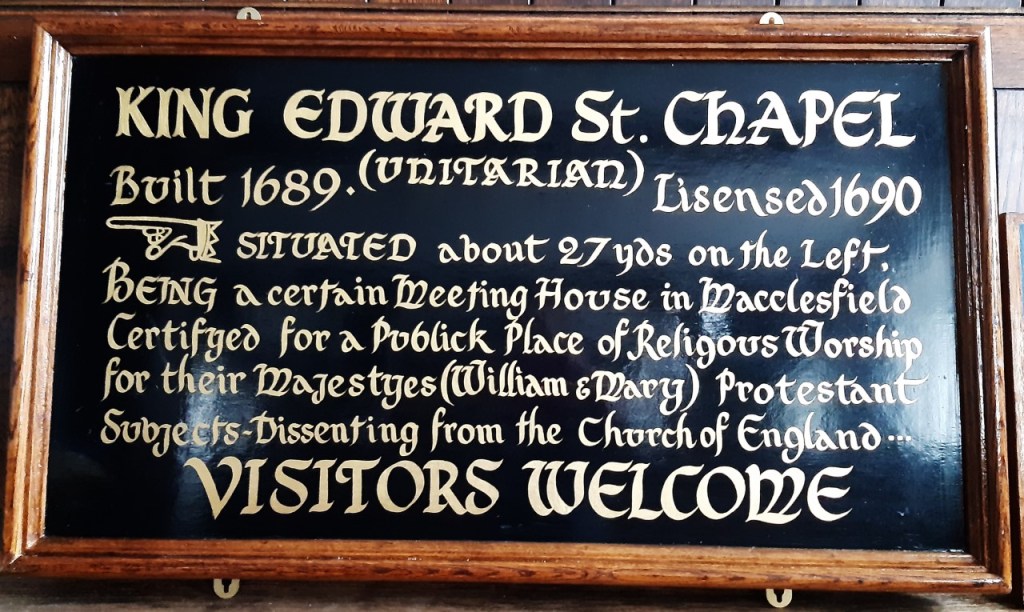 KING EDWARD St. CHAPEL
(UNITARIAN)
Built 1689. Lisensed 1690
SITUATED about 27 yds on the Left.
BEING a certain Meeting House in Macclesfield
Certifyed for a Publick Place of Religous Worship
for their Majestyes (William & Mary) Protestant
Subjects-Dissenting from the Church of England...
VISITORS WELCOME